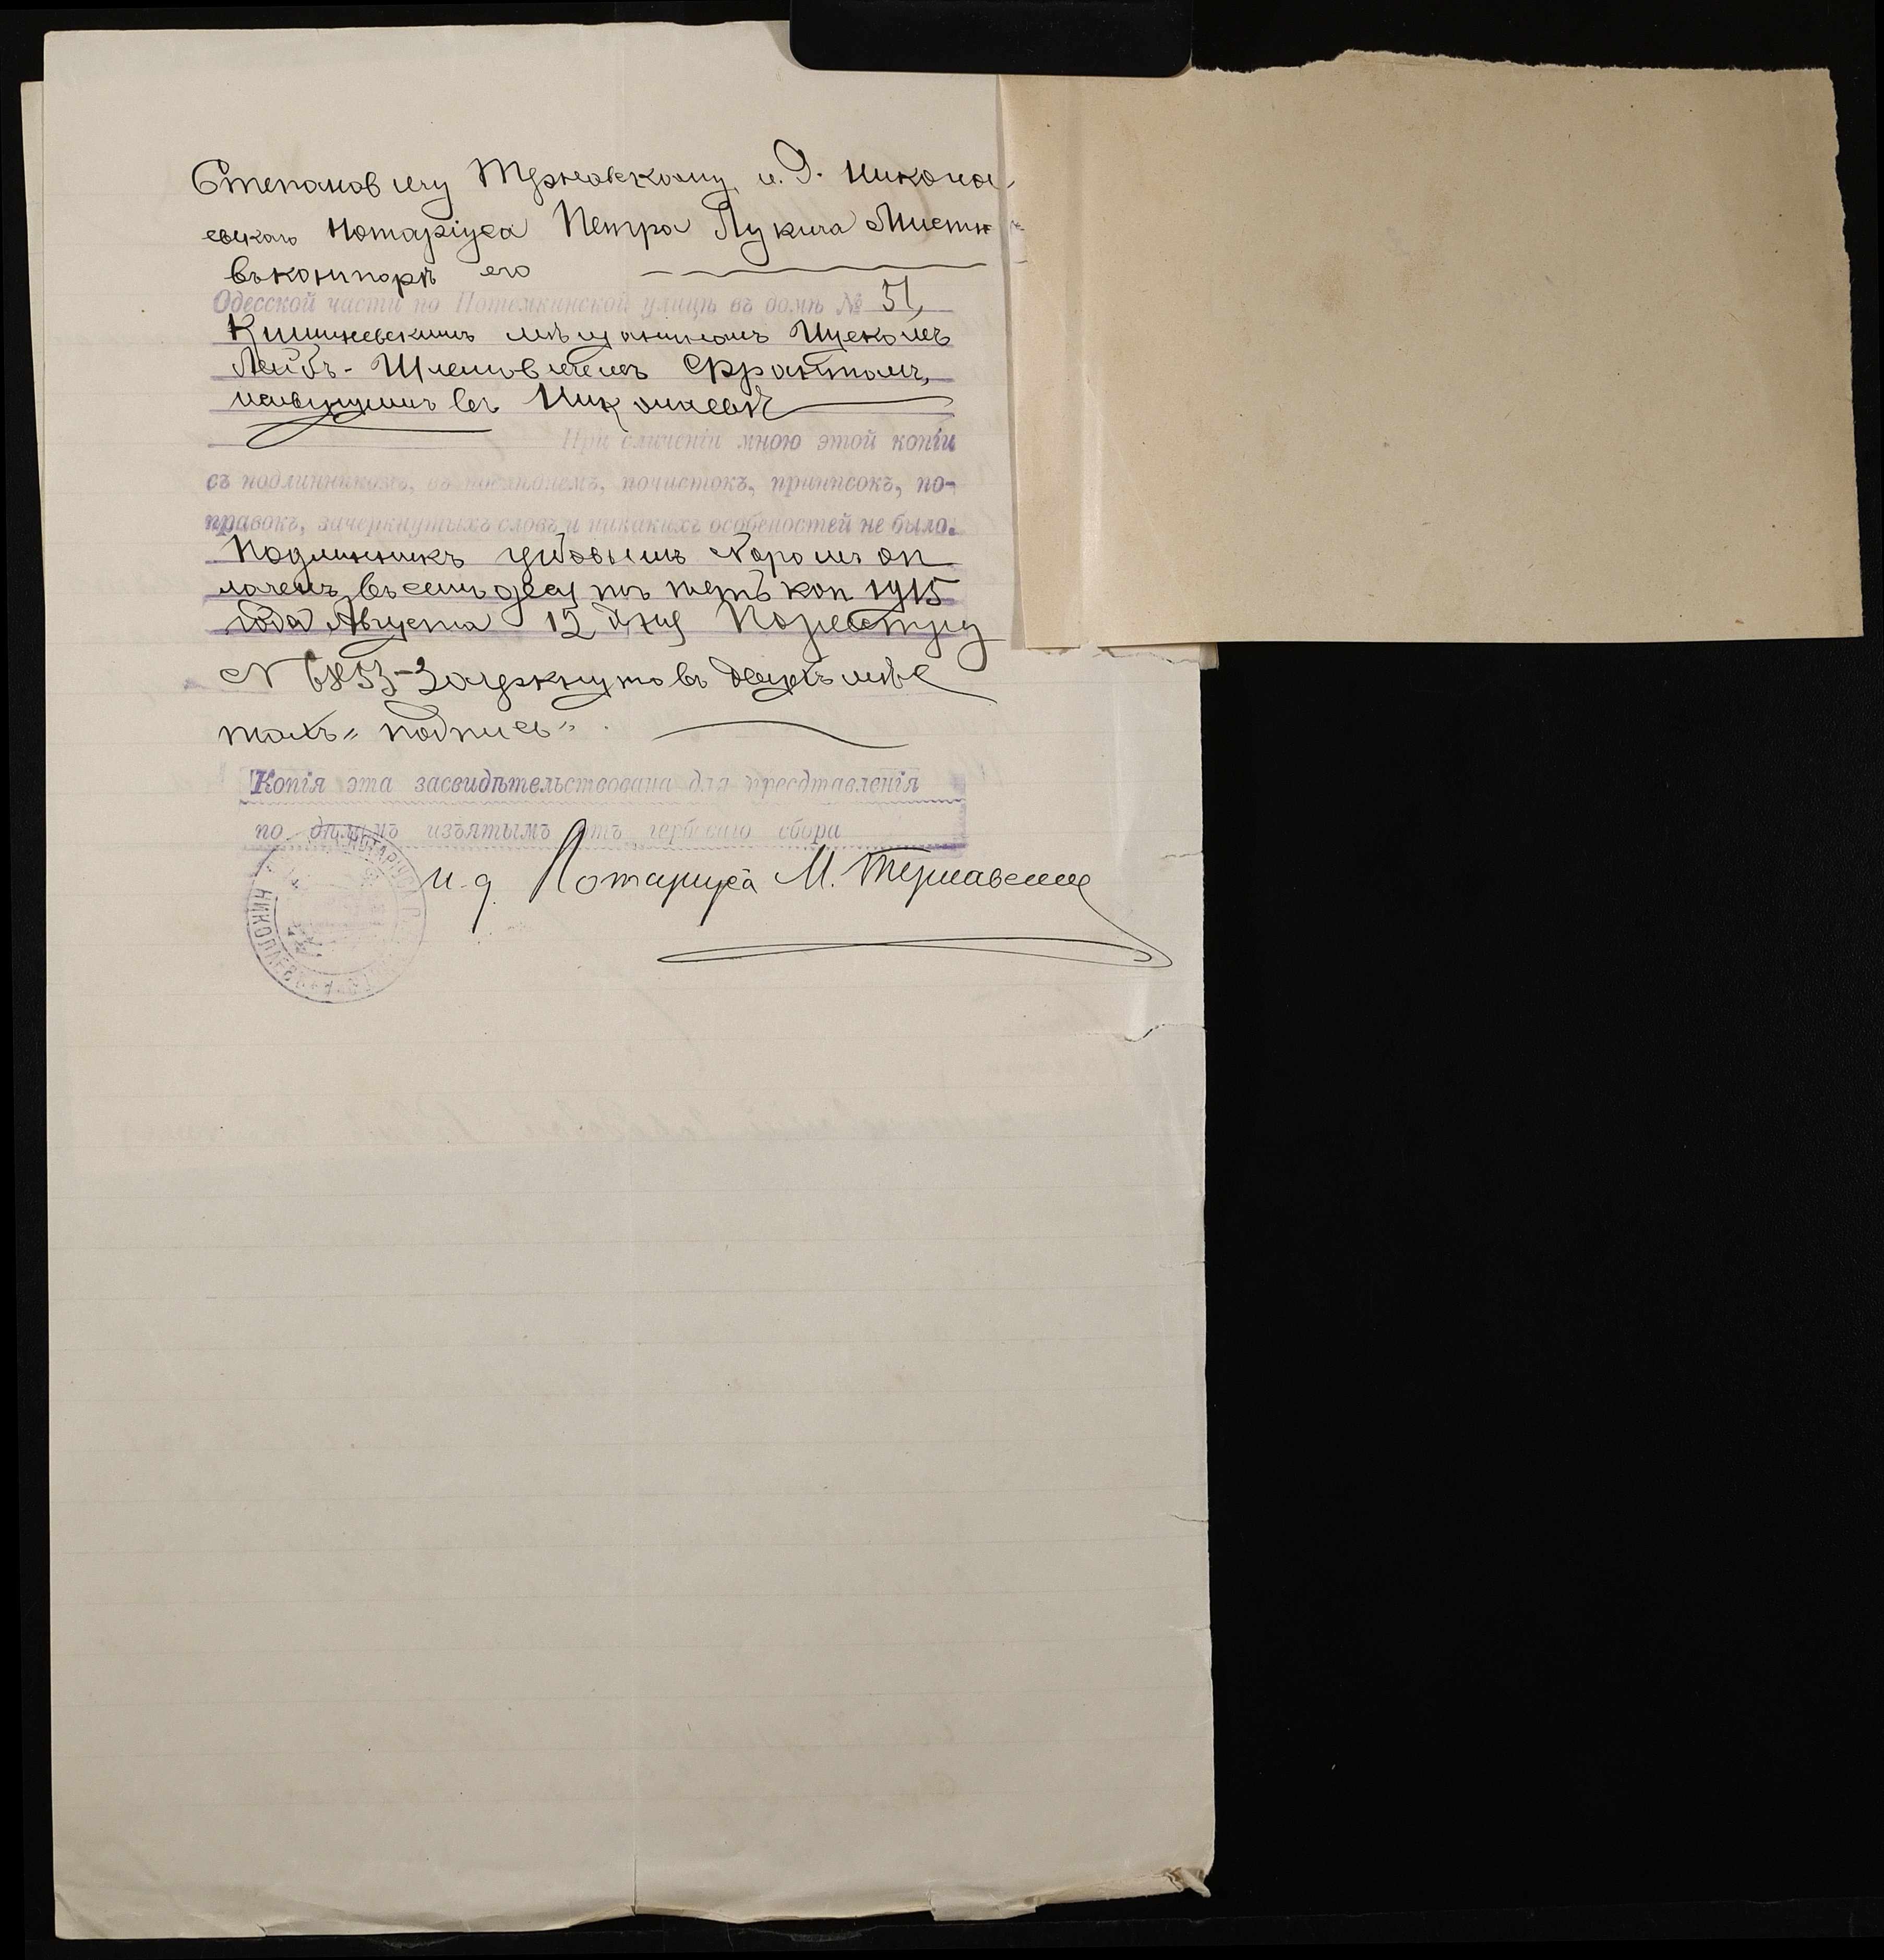 Степановичу Терновскому, и. д. Никола-
евскаго Нотаріуса Петра Лукича Мистю
въ конторѣ его
Одесской части по Потемкинской улицѣ въ домѣ № 51,
Кишиневскимъ мѣщаниномъ Ицекомъ
Лейбъ-Шлемовичемъ Франтомъ,
живущимъ въ Николаевѣ
При сличеніи мною этой копіи
съ подлинникомъ, въ послѣднемъ, почистокъ, приписокъ, по-
правокъ, зачеркнутыхъ словъ и никакихъ особеностей не было.
Подлинникъ гербовымъ сборомъ оп
лаченъ въ семьдесятъ пять коп 1915
года Августа 12 дня По реестру
N 6853 - Зачеркнуто въ двухъ мѣс
тахъ „подпись".
Копія эта засвидѣтельствована для пресдтавленія
по дѣламъ изъятымъ отъ гербоваго сбора
И. д. Нотаріуса М. Терновскій
НИКОЛАЕВ